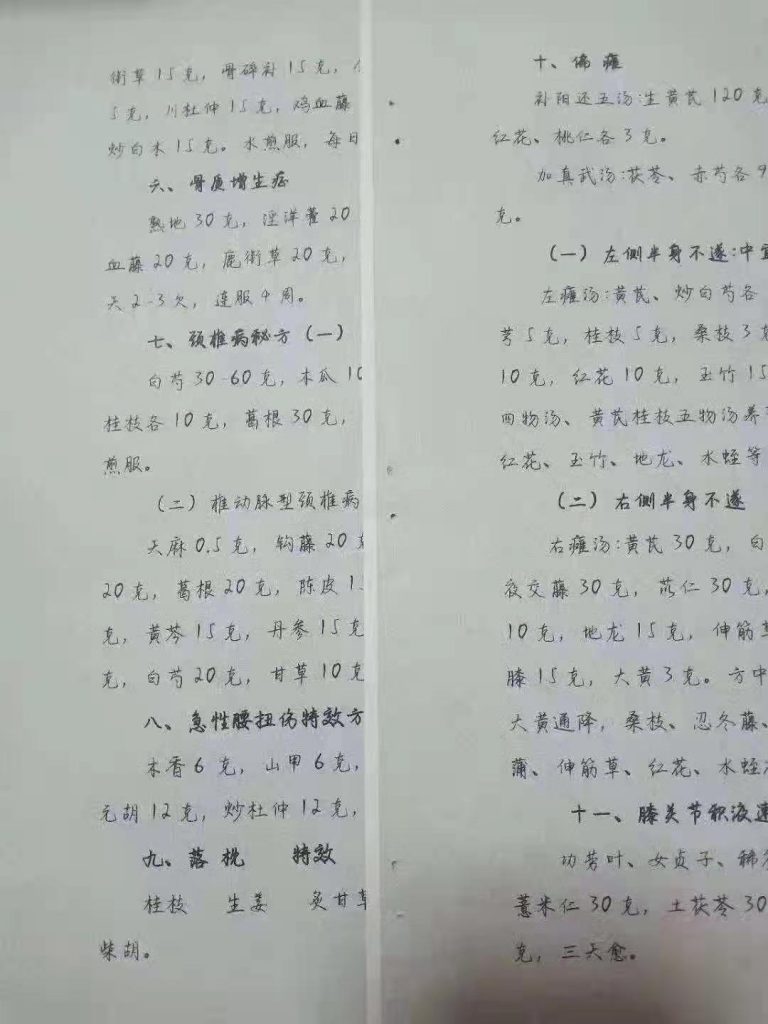 衔草15克，骨碎补15克，
5克，川杜仲15克，鸡血藤
炒白术15克。水煎服，每日
六、骨质增生症
熟地30克，淫洋藿20
血藤20克，鹿衔草20克，
天2-3次，连服4周。
七、颈椎病秘方（一）
白芍30-60克，木瓜10
桂枝各10克，葛根30克，
煎服。
（二）椎动脉型颈椎病
天麻0.5克，钩藤20克
20克，葛根20克，陈皮1
克，黄芩15克，丹参15克
克，白芍20克，甘草10克
八、急性腰扭伤特效方
木香6克，山甲6克，
元胡12克，炒杜仲12克，
九、落枕 特效
桂枝 生姜 炙甘草
柴胡。
十、偏瘫
补阳还五汤:生黄芪120克
红花、桃仁各3克。
加真武汤:茯苓、赤芍各9
克。
（一）左侧半身不遂:中
左瘫汤:黄芪、炒白芍各
芎5克，桂枝5克，桑枝3
10克，红花10克，玉竹15
四物汤、黄芪桂枝五物汤养
红花、玉竹、地龙、水蛭等
（二）右侧半身不遂
右瘫汤:黄芪30克，白
夜交藤30克，苡仁30克，
10克，地龙15克，伸筋草
膝15克，大黄3克。方中
大黄通降，桑枝、忍冬藤、
蒲、伸筋草、红花、水蛭
十一、膝关节积液速
功劳叶、女贞子、稀
薏米仁30克，土茯苓30
克，三天愈。